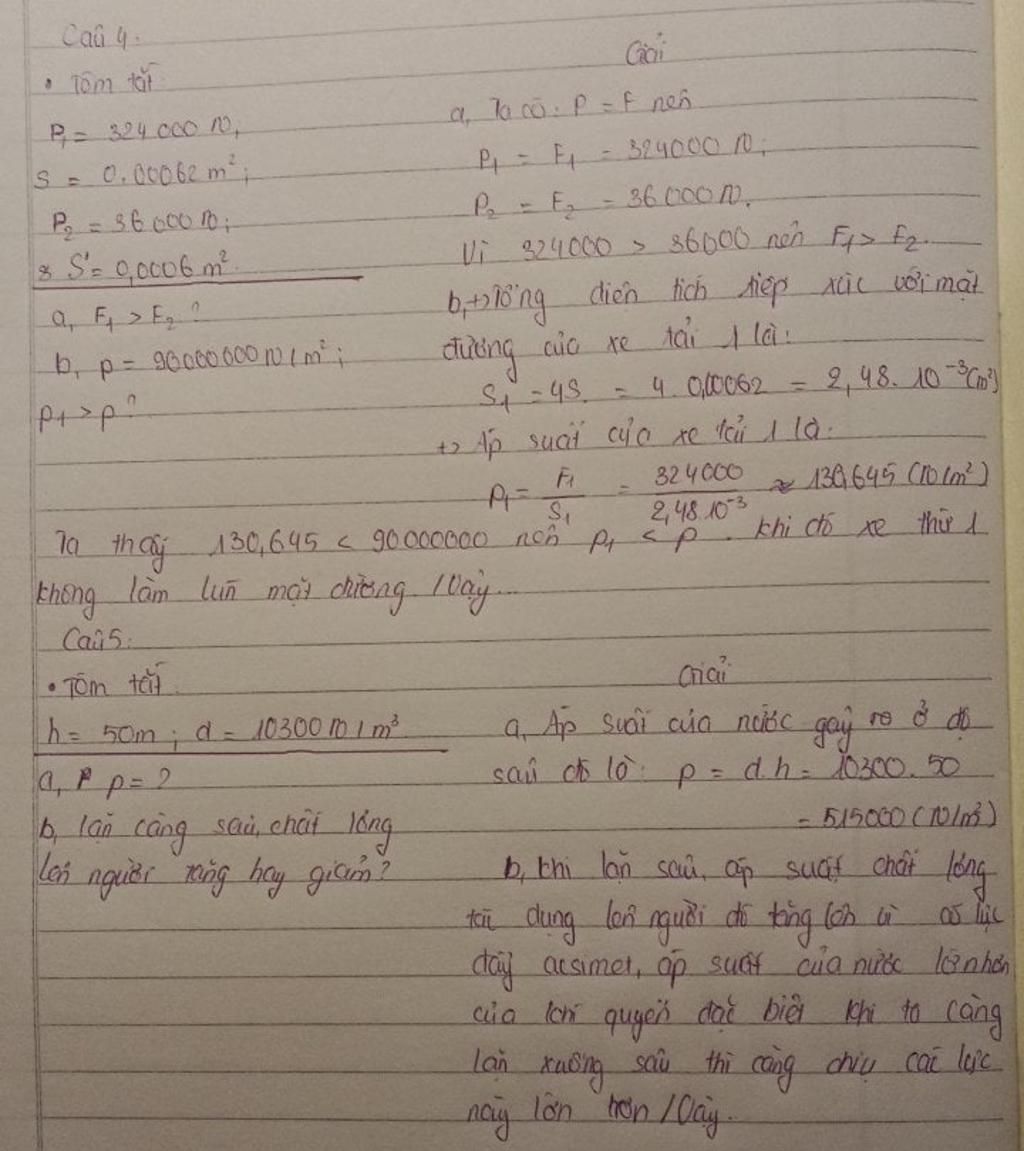 Câu 4.
• Tóm tắt
P₁ = 324 000 N;
S = 0.00062 m²;
P₂ = 36 000 N;
S' = 0,0006 m²
a, F₁ > F₂ ?
b, p = 90000000 N/m²;
p₁ > p ?
Giải
a, Ta có: P = F nên
P₁ = F₁ = 324000 N;
P₂ = F₂ = 36 000 N.
Vì 324000 > 36000 nên F₁ > F₂.
b, +> Tổng diện tích tiếp xúc với mặt
đường của xe tải 1 là:
S₁ = 4S = 4. 0,00062 = 2,48. 10⁻³ (m²)
+> Áp suất của xe tải 1 là:
p₁ = F₁/S₁ = 324000/2,48.10⁻³ ≈ 130,645 (N/m²)
Ta thấy 130,645 < 90000000 nên p₁ < p. Khi đó xe thứ 1
không làm lún mặt đường này.
Câu 5:
• Tóm tắt
h = 50m ; d = 10300 N/m³
a, p = ?
b, lặn càng sâu, chất lỏng
lên người tăng hay giảm?
Giải
a, Áp suất của nước gây ra ở độ
sâu đó là: p = d.h = 10300. 50
= 515000 (N/m²)
b, khi lặn sâu, áp suất chất lỏng
tác dụng lên người đó tăng lên vì có lực
đẩy acsimet, áp suất của nước lớn hơn
của khí quyển đặc biệt khi ta càng
lặn xuống sâu thì càng chịu các lực
này lớn hơn